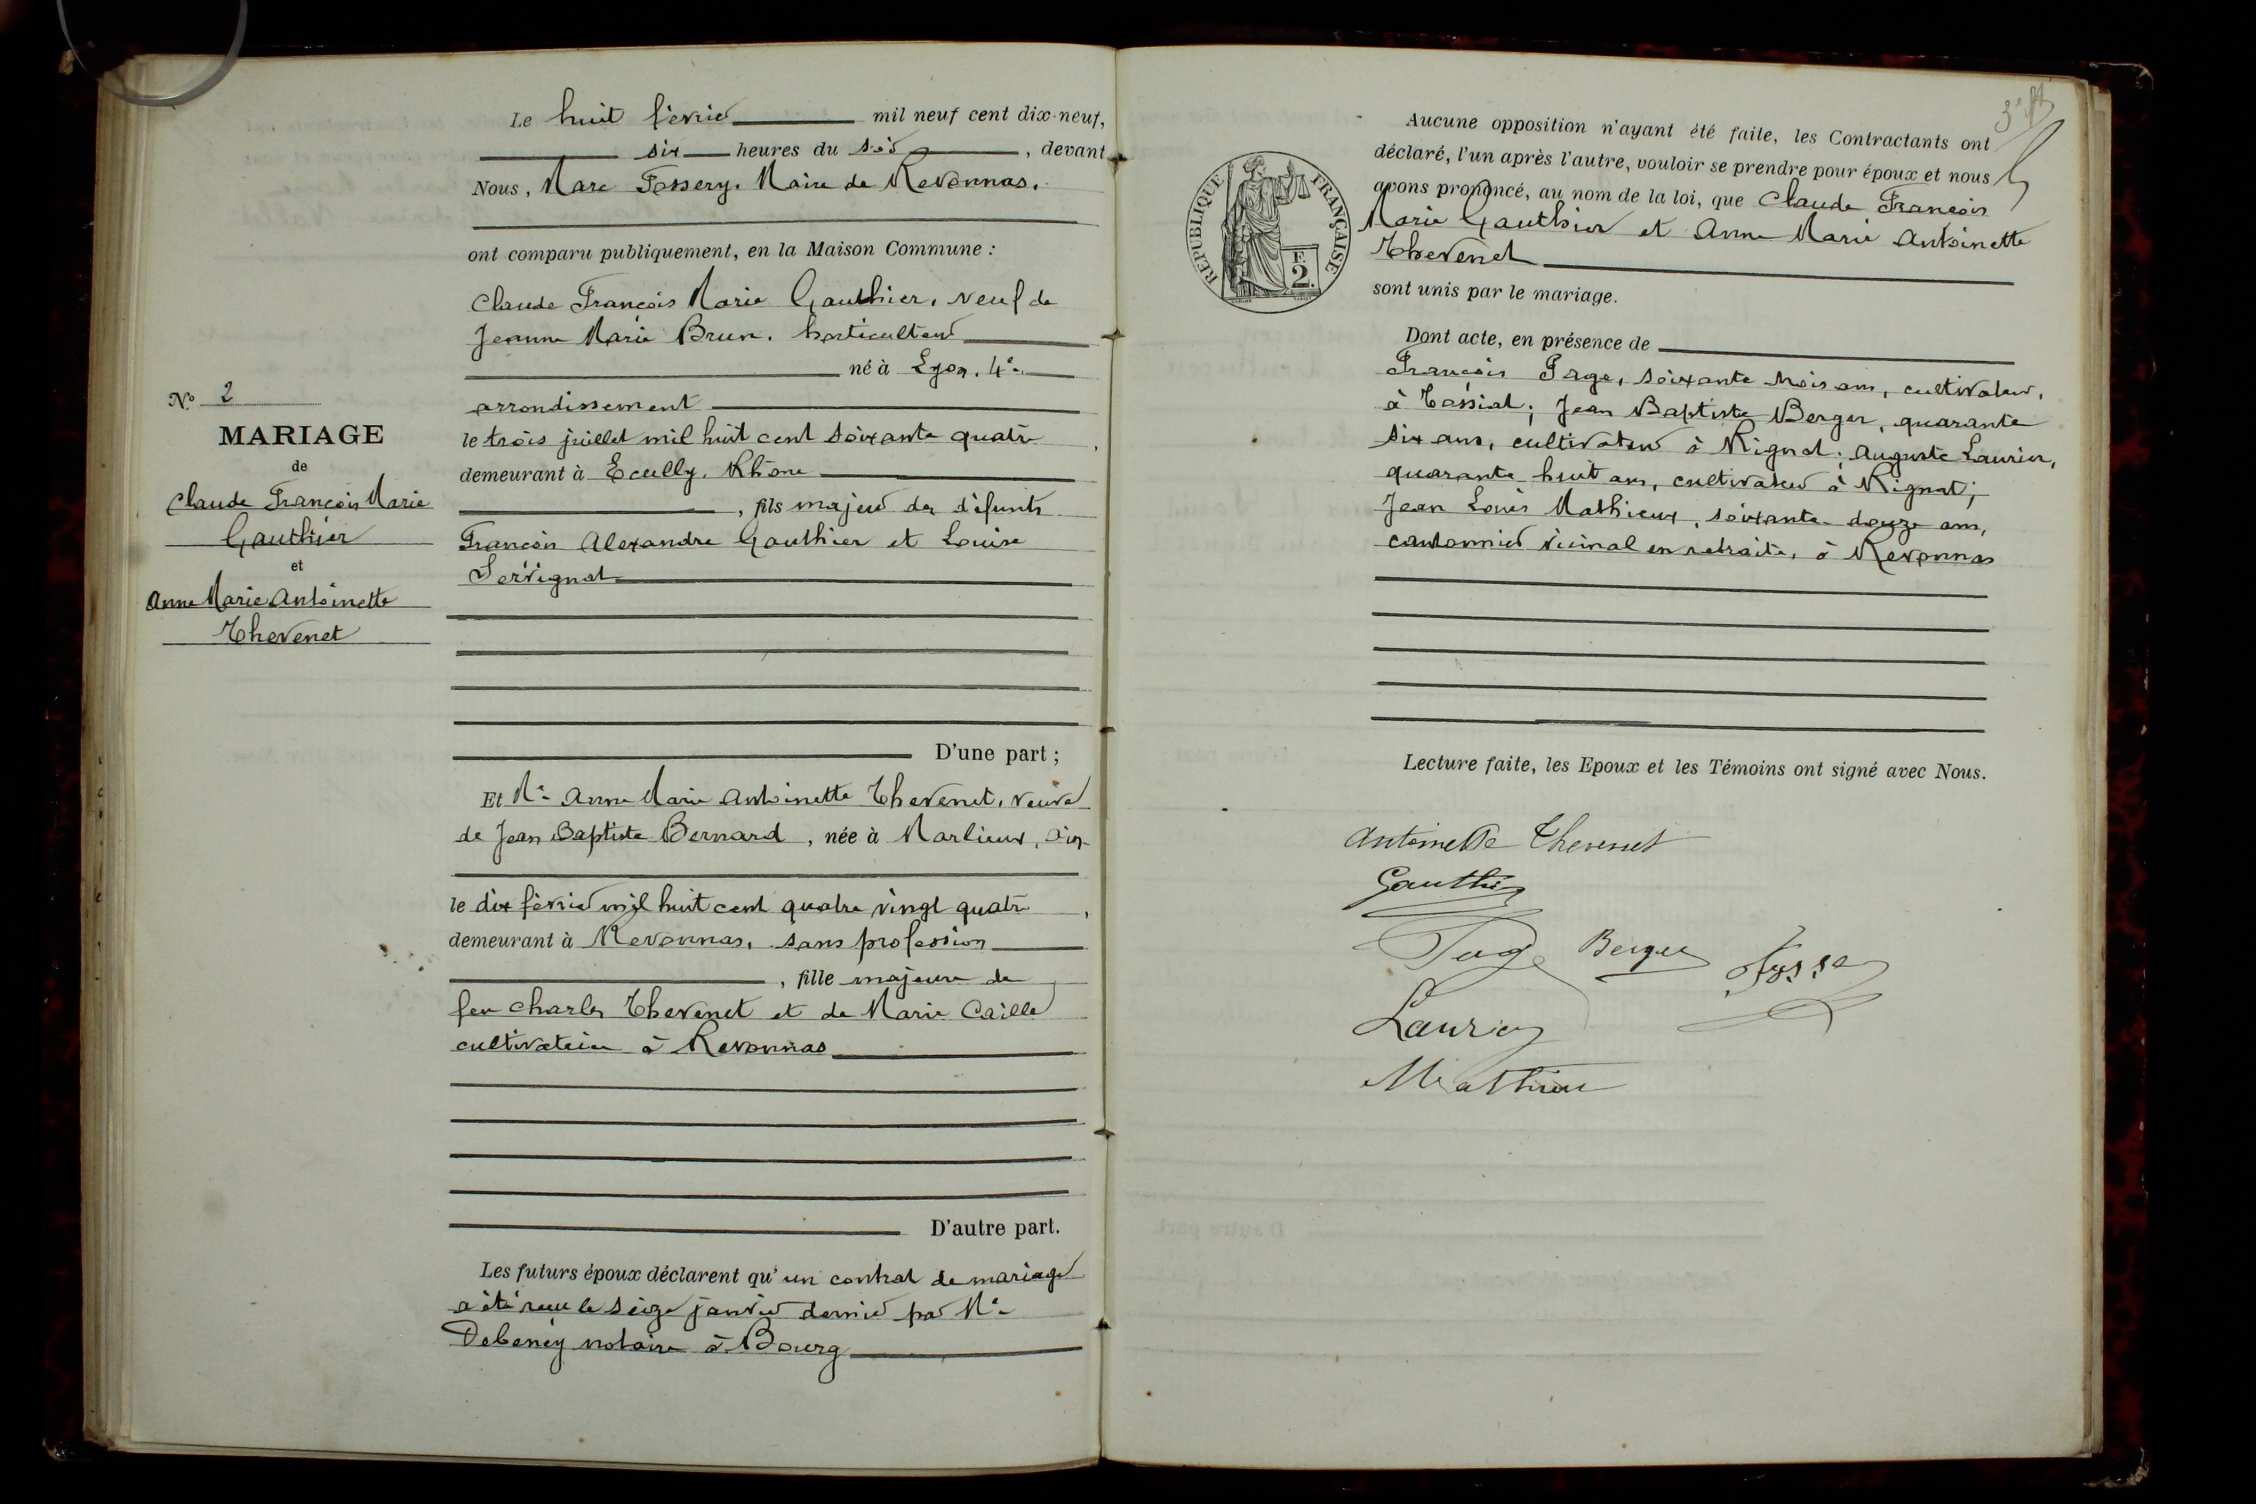 Le huit février mil neuf cent dix-neuf,
six heures du soir, devant
Nous, Marc Fossery. Maire de Revonnas.
ont comparu publiquement, en la Maison Commune :
Claude François Marie Gauthier, veuf de
Jeanne Marie Brun. horticulteur
né à Lyon. 4e
arrondissement
le trois juillet mil huit cent soixante quatre,
demeurant à Ecully. Rhône
, fils majeur des défunts
François Alexandre Gauthier et Louise
Servignat
D'une part ;
No 2
MARIAGE
de
Claude François Marie
Gauthier
et
Anne Marie Antoinette
Thevenet
Et Me Anne Marie Antoinette Thevenet, veuve
de Jean Baptiste Bernard, née à Marlieux, Ain
le dix février mil huit cent quatre vingt quatre,
demeurant à Revonnas, sans profession
, fille majeure de
feu Charles Thevenet et de Marie Caille
cultivatrice à Revonnas
D'autre part.
Les futurs époux déclarent qu'un contrat de mariage
a été reçu le seize janvier dernier par Me
Debeney notaire à Bourg
3e
Aucune opposition n'ayant été faite, les Contractants ont
déclaré, l'un après l'autre, vouloir se prendre pour époux et nous
avons prononcé, au nom de la loi, que Claude François
Marie Gauthier et Anne Marie Antoinette
Thevenet
sont unis par le mariage.
RÉPUBLIQUE FRANÇAISE
F.
2.
Dont acte, en présence de
François Page, soixante trois ans, cultivateur,
à Tossiat ; Jean Baptiste Berger, quarante
six ans, cultivateur à Rignat ; Auguste Laurier,
quarante huit ans, cultivateur à Rignat ;
Jean Louis Mathieux, soixante-douze ans,
cantonnier vicinal en retraite, à Revonnas
Lecture faite, les Epoux et les Témoins ont signé avec Nous.
Antoinette Thevenet
Gauthier
Page Berger
Laurier
Mathieu